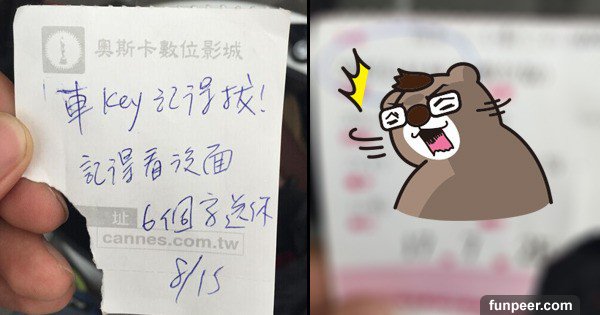 奧斯卡數位影城
車key記得拔!
記得看後面
址
6個字送你
cannes.com.tw
8/15
funpeer.com